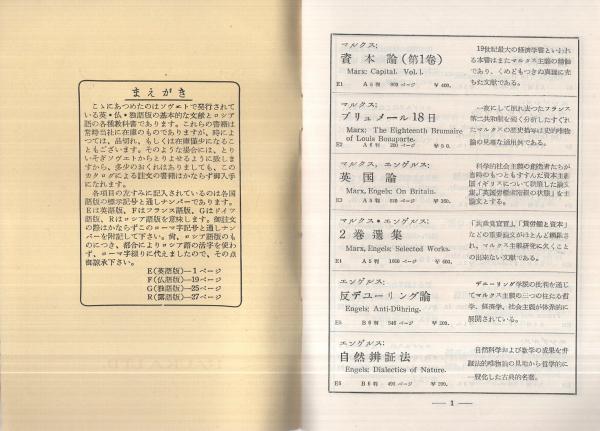 まえがき
こゝにあつめたのはソヴエトで発行されて
いる英・仏・独語版の基本的な文献とロシア
語の各種教科書であります。これらの書籍は
常時当社に在庫のものでありますが、時によ
つては、品切れ、もしくは在庫僅少になるこ
ともございます。そのような場合には、とり
いそぎソヴエトからとりよせるように致しま
すから、多少のおくれはありましても、この
カタログによる註文の書籍はかならず御入手
になれます。
各項目の左すみに記入されているのは各国
語版の標示記号と通しナンバーであります。
Eは英語版、Fはフランス語版、Gはドイツ語
版、Rはロシア語版を意味します。御註文
の際はかならずこのローマ字記号と通しナン
バーを附記して下さい。尚、ロシア語版のも
のにつき、都合によりロシア語の活字を使わ
ず、ローマ字綴りに代えましたので、その点
御諒承下さい。
E(英語版)—1ページ
F(仏語版)—19ページ
G(独語版)—25ページ
R(露語版)—27ページ
マルクス:
資本論(第1巻)
Marx: Capital. Vol. 1.
E1 A5判 800ページ ¥400.
19世紀最大の経済学書といわれ
る本書はまたマルクス主義の精髄
であり、くめどもつきぬ真理に充
ちた文献である。
マルクス:
ブリュメール18日
Marx: The Eighteenth Brumaire
of Louis Bonaparte.
E2 A6判 ページ ¥50.
一夜にして崩れ去つたフランス
第二共和制を鋭く分析したすぐれ
たマルクスの歴史的で史的唯物
論の見事な適用例である。
マルクス, エンゲルス:
英国論
Marx, Engels: On Britain.
E3 A5判 ページ ¥350.
科学的社会主義の創造者たちが
当時のもつともすすんだ資本主義
国イギリスについて執筆した論文
「英国労働者階級の状態」を主
論文とする。
マルクス・エンゲルス:
2巻選集
Marx, Engels: Selected Works.
E4 A5判 ページ ¥600.
「共産党宣言」、「賃労働と資本」
などの重要論文がほとんど網羅さ
れ、マルクス主義研究に欠くこと
の出来ない文献である。
エンゲルス:
反デユーリング論
Engels: Anti-Dühring.
E5 B6判 546ページ ¥200.
デユーリング学説の批判を通じ
てマルクス主義の三つの柱たる哲
学、経済学、社会主義が体系的に
展開されている。
エンゲルス:
自然辨証法
Engels: Dialectics of Nature.
E6 B6判 ページ ¥200.
自然科学および数学の成果を弁
証法的唯物論の見地から哲学的に
一般化した古典的名著。
— 1 —